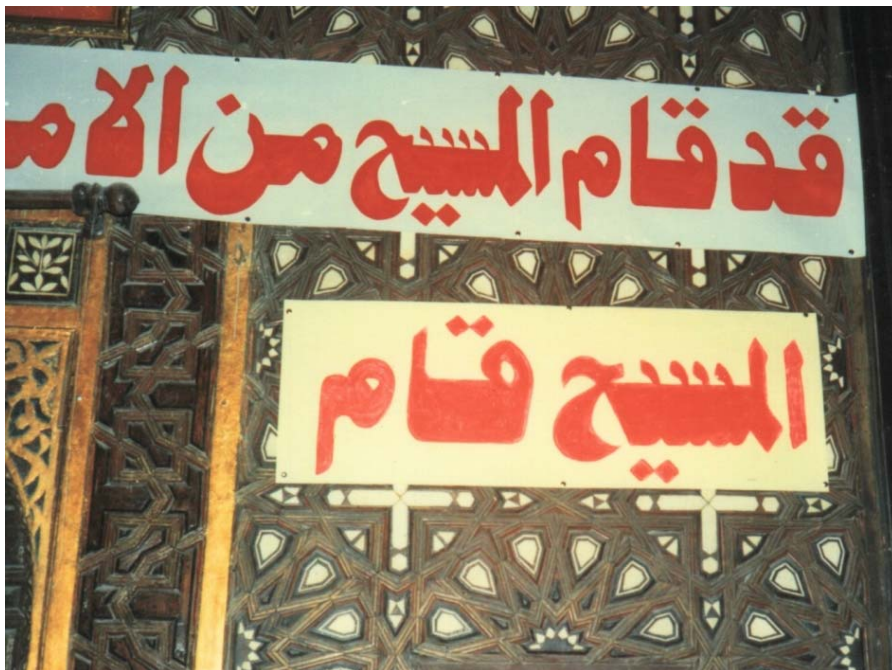 قد قام المسيح من الام
المسيح قام